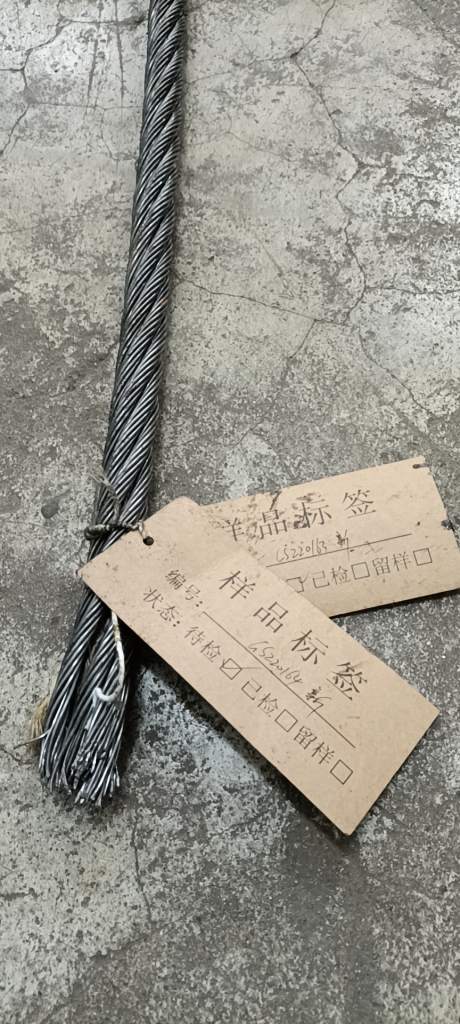 样品标签
GS220163 新
已检□留样□
样品标签
编号: GS220164 新
状态: 待检☑已检□留样□